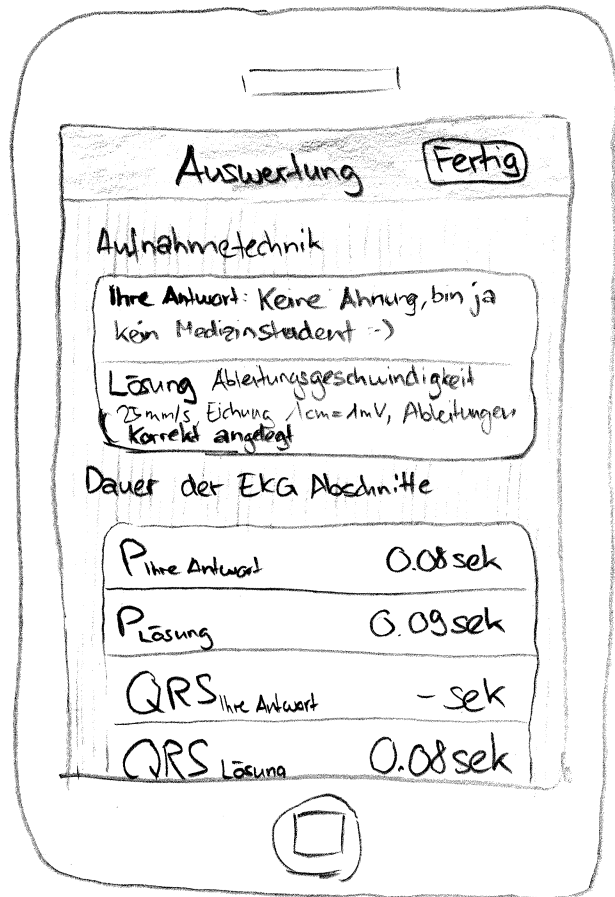 Auswertung Fertig
Aufnahmetechnik
Ihre Antwort: Keine Ahnung, bin ja
kein Medizinstudent :-)
Lösung Ableitungsgeschwindigkeit
25mm/s Eichung 1cm=1mV, Ableitungen
Korrekt angelegt
Dauer der EKG Abschnitte
P Ihre Antwort 0.08 sek
P Lösung 0.09 sek
QRS Ihre Antwort - sek
QRS Lösung 0.08 sek